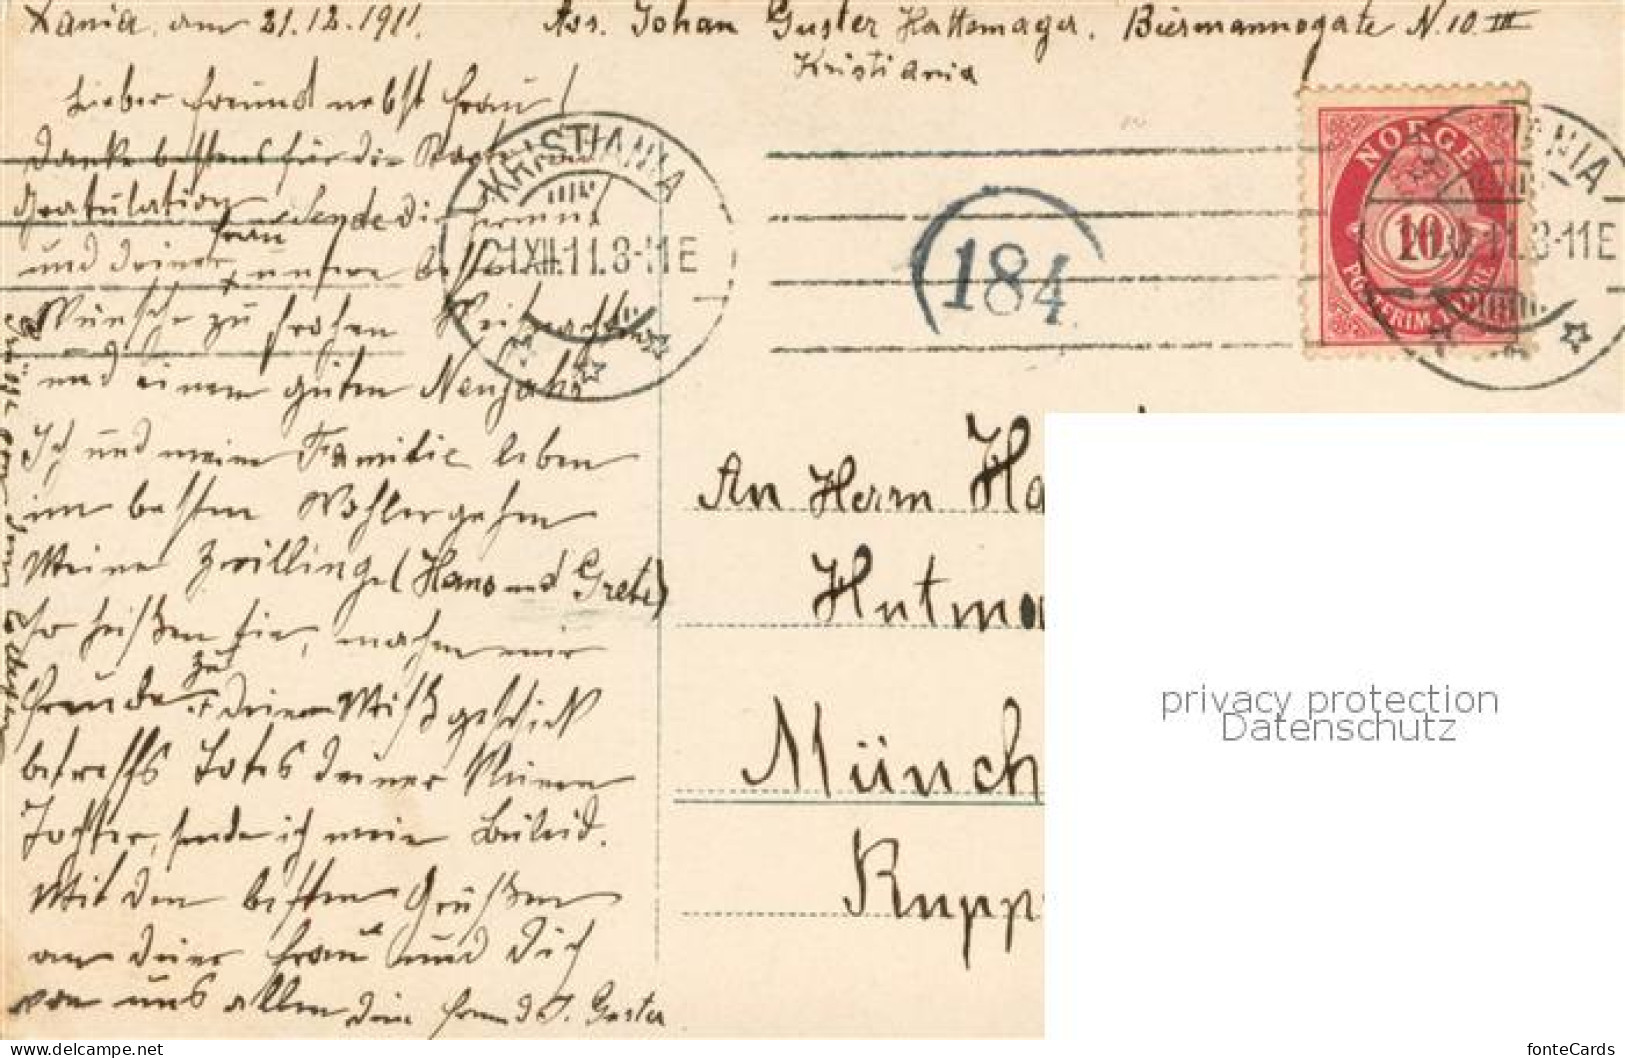 Xania, am 21.12.1911.
Ass. Johan Guster Hattemager, Biermannsgate N. 10 III
Kristiania
Lieber Freund nebst Frau!
Danke bestens für die Karte und
Gratulation. Sende dir hiermit
und deiner Frau, unsere besten
Wünsche zu frohen Weihnachten
und einem guten Neujahr
Ich und meine Familie leben
im besten Wohlergehen
Meine Zwillinge (Hans und Grete)
so heißen sie, machen mir
Freude. zu deinem Mißgeschick
betreffs Todes deiner kleinen
Tochter, sende ich mein Beileid.
Mit den besten Grüßen
an deine Frau und dich
von uns allen dein Freund J. Guster
KRISTIANIA
21XII.11.8-11E
184
NORGE
10
POSTFRIM
ANIA
21.XII.11.8-11E
An Herrn Ha
Hutma
Münch
Rupp
privacy protection
Datenschutz
www.ansichtskartenversand.com
fonteCards